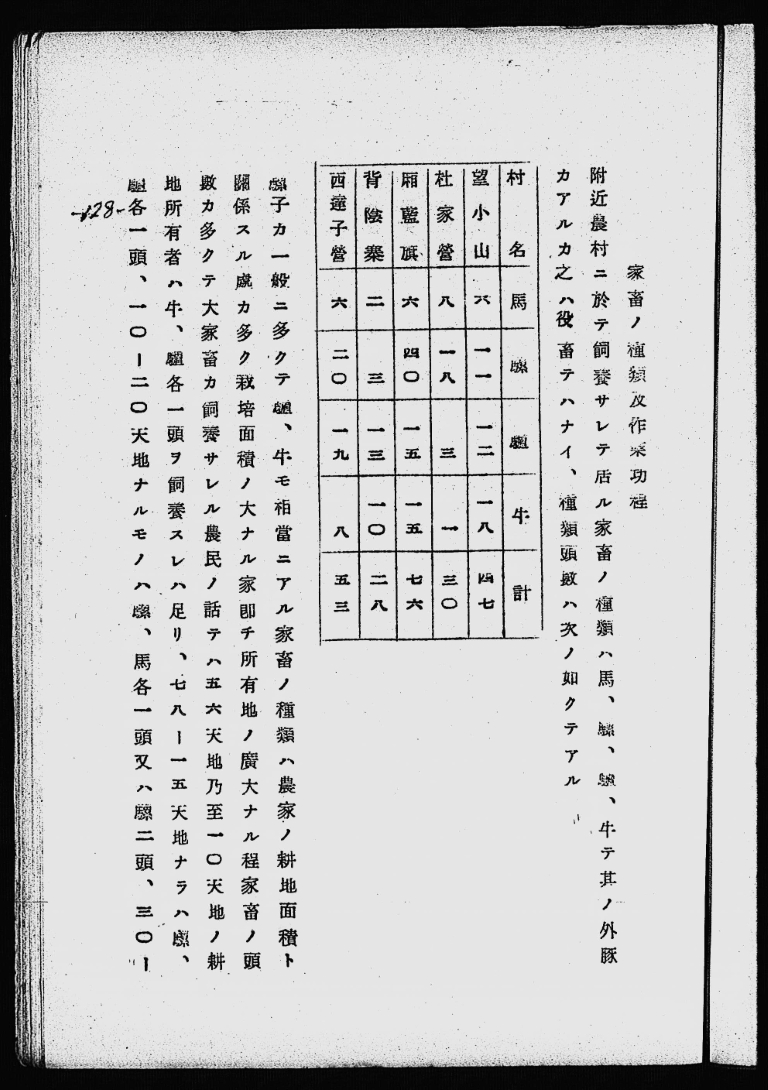 家畜ノ種類及作業功程
附近農村ニ於テ飼養サレテ居ル家畜ノ種類ハ馬、騾、驢、牛テ其ノ外豚
カアルカ之ハ役畜テハナイ、種類頭數ハ次ノ如クテアル
村名 馬 騾 驢 牛 計
望小山 六 一一 一二 一八 四七
杜家營 八 一八 三 一 三〇
廂藍旗 六 四〇 一五 一五 七六
背陰寨 二 三 一三 一〇 二八
西達子營 六 二〇 一九 八 五三
騾子カ一般ニ多クテ驢、牛モ相當ニアル家畜ノ種類ハ農家ノ耕地面積ト
關係スル處カ多ク栽培面積ノ大ナル家卽チ所有地ノ廣大ナル程家畜ノ頭
數カ多クテ大家畜カ飼養サレル農民ノ話テハ五六天地乃至一〇天地ノ耕
地所有者ハ牛、驢各一頭ヲ飼養スレハ足リ、七八ー一五天地ナラハ騾、
驢各一頭、一〇ー二〇天地ナルモノハ騾、馬各一頭又ハ騾二頭、三〇ー
-128-